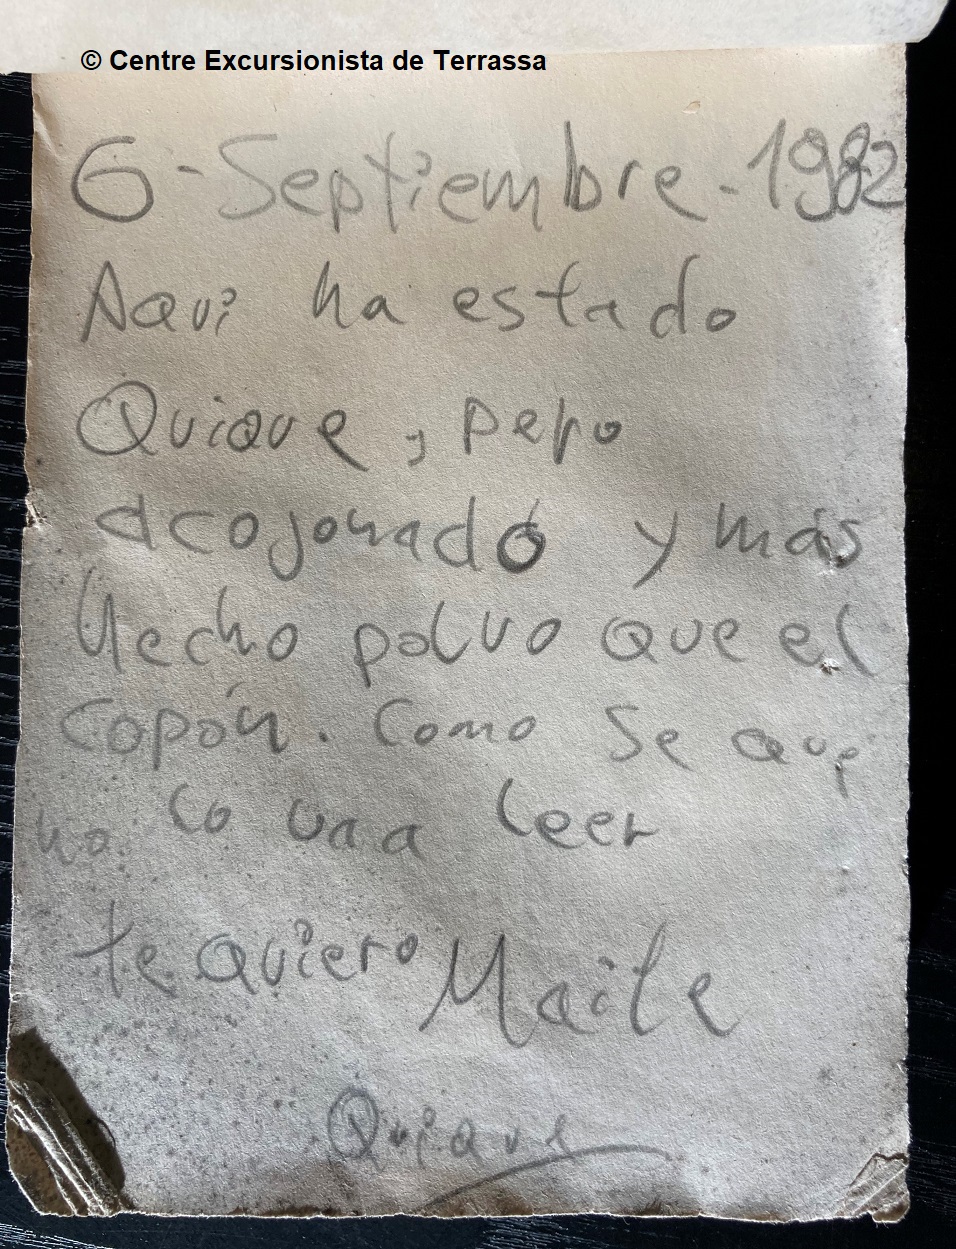 © Centre Excursionista de Terrassa
6-Septiembre-1982
Aqui ha estado
Quique, pero
acojonado y más
Hecho polvo que el
copón. Como se que
no lo va a leer
te quiero Maite
Quique